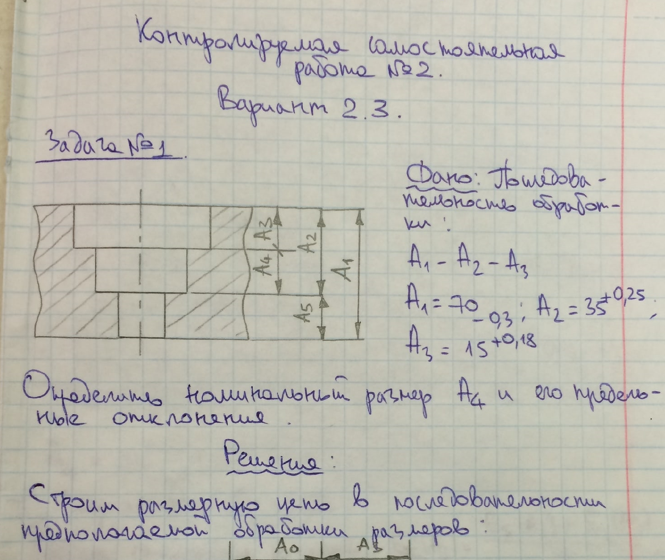 Контролируемая самостоятельная
работа №2.
Вариант 2.3.
Задача №1.
Дано: Последова-
тельность обработ-
ки:
A₁ - A₂ - A₃
A₁ = 70₋₀,₃; A₂ = 35⁺⁰,²⁵;
A₃ = 15⁺⁰,¹⁸
A₃
A₄
A₂
A₅
A₁
Определить номинальный размер A₄ и его предель-
ные отклонения.
Решение:
Строим размерную цепь в последовательности
предпологаемой обработки размеров:
A₀